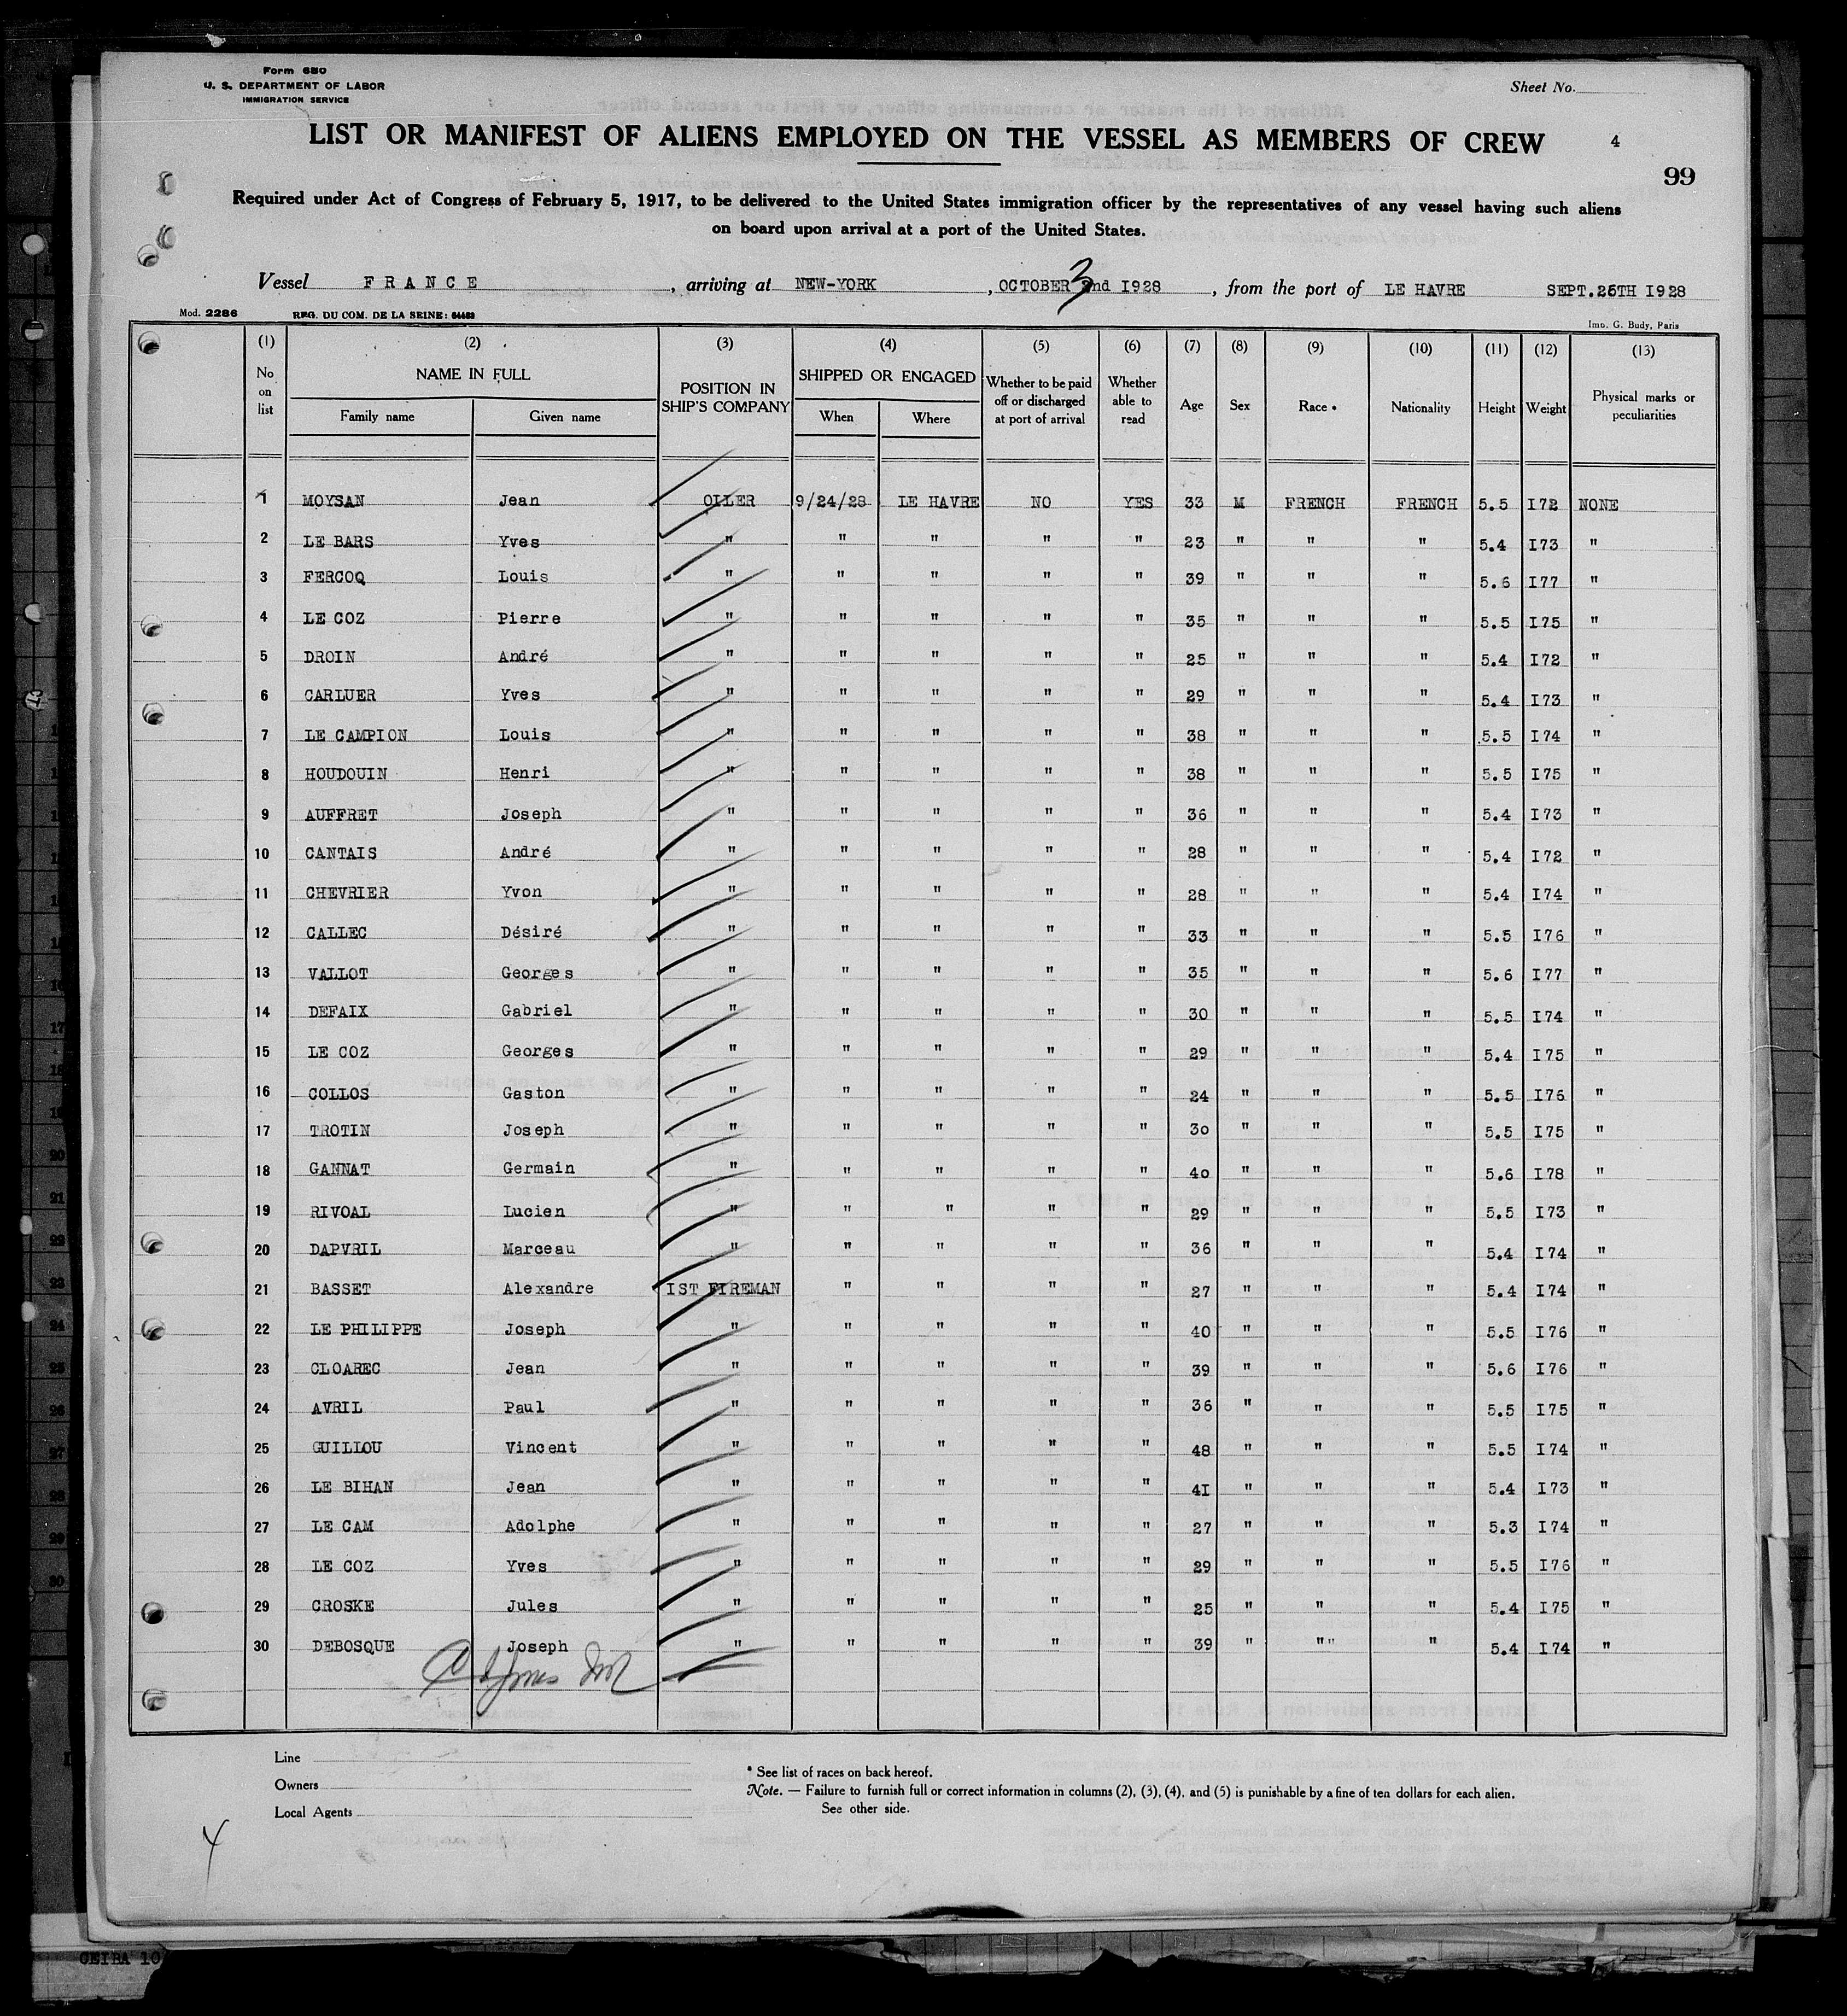 Form 680
U. S. DEPARTMENT OF LABOR
IMMIGRATION SERVICE
Sheet No.
LIST OR MANIFEST OF ALIENS EMPLOYED ON THE VESSEL AS MEMBERS OF CREW
4
99
Required under Act of Congress of February 5, 1917, to be delivered to the United States immigration officer by the representatives of any vessel having such aliens
on board upon arrival at a port of the United States.
Vessel FRANCE, arriving at NEW-YORK, OCTOBER 3 2nd I928, from the port of LE HAVRE SEPT.26TH I928
Mod. 2286 REG. DU COM. DE LA SEINE: Imp. G. Budy, Paris
(1) (2) (3) (4) (5) (6) (7) (8) (9) (10) (11) (12) (13)
No on list NAME IN FULL Family name Given name POSITION IN SHIP'S COMPANY SHIPPED OR ENGAGED When Where Whether to be paid off or discharged at port of arrival Whether able to read Age Sex Race * Nationality Height Weight Physical marks or peculiarities
1 MOYSAN Jean OILER 9/24/28 LE HAVRE NO YES 33 M FRENCH FRENCH 5.5 I72 NONE
2 LE BARS Yves " " " " " 23 " " " 5.4 I73 "
3 FERCOQ Louis " " " " " 39 " " " 5.6 I77 "
4 LE COZ Pierre " " " " " 35 " " " 5.5 I75 "
5 DROIN André " " " " " 25 " " " 5.4 I72 "
6 CARLUER Yves " " " " " 29 " " " 5.4 I73 "
7 LE CAMPION Louis " " " " " 38 " " " 5.5 I74 "
8 HOUDOUIN Henri " " " " " 38 " " " 5.5 I75 "
9 AUFFRET Joseph " " " " " 36 " " " 5.4 I73 "
10 CANTAIS André " " " " " 28 " " " 5.4 I72 "
11 CHEVRIER Yvon " " " " " 28 " " " 5.4 I74 "
12 CALLEC Désiré " " " " " 33 " " " 5.5 I76 "
13 VALLOT Georges " " " " " 35 " " " 5.6 I77 "
14 DEFAIX Gabriel " " " " " 30 " " " 5.5 I74 "
15 LE COZ Georges " " " " " 29 " " " 5.4 I75 "
16 COLLOS Gaston " " " " " 24 " " " 5.5 I76 "
17 TROTIN Joseph " " " " " 30 " " " 5.5 I75 "
18 GANNAT Germain " " " " " 40 " " " 5.6 I78 "
19 RIVOAL Lucien " " " " " 29 " " " 5.5 I73 "
20 DAPVRIL Marceau " " " " " 36 " " " 5.4 I74 "
21 BASSET Alexandre IST FIREMAN " " " " 27 " " " 5.4 I74 "
22 LE PHILIPPE Joseph " " " " " 40 " " " 5.5 I76 "
23 CLOAREC Jean " " " " " 39 " " " 5.6 I76 "
24 AVRIL Paul " " " " " 36 " " " 5.5 I75 "
25 GUILLOU Vincent " " " " " 48 " " " 5.5 I74 "
26 LE BIHAN Jean " " " " " 4I " " " 5.4 I73 "
27 LE CAM Adolphe " " " " " 27 " " " 5.3 I74 "
28 LE COZ Yves " " " " " 29 " " " 5.5 I76 "
29 CROSKE Jules " " " " " 25 " " " 5.4 I75 "
30 DEBOSQUE Joseph " " " " " 39 " "" " 5.4 I74 "
Line
Owners
Local Agents
* See list of races on back hereof.
Note. — Failure to furnish full or correct information in columns (2), (3), (4), and (5) is punishable by a fine of ten dollars for each alien.
See other side.
4